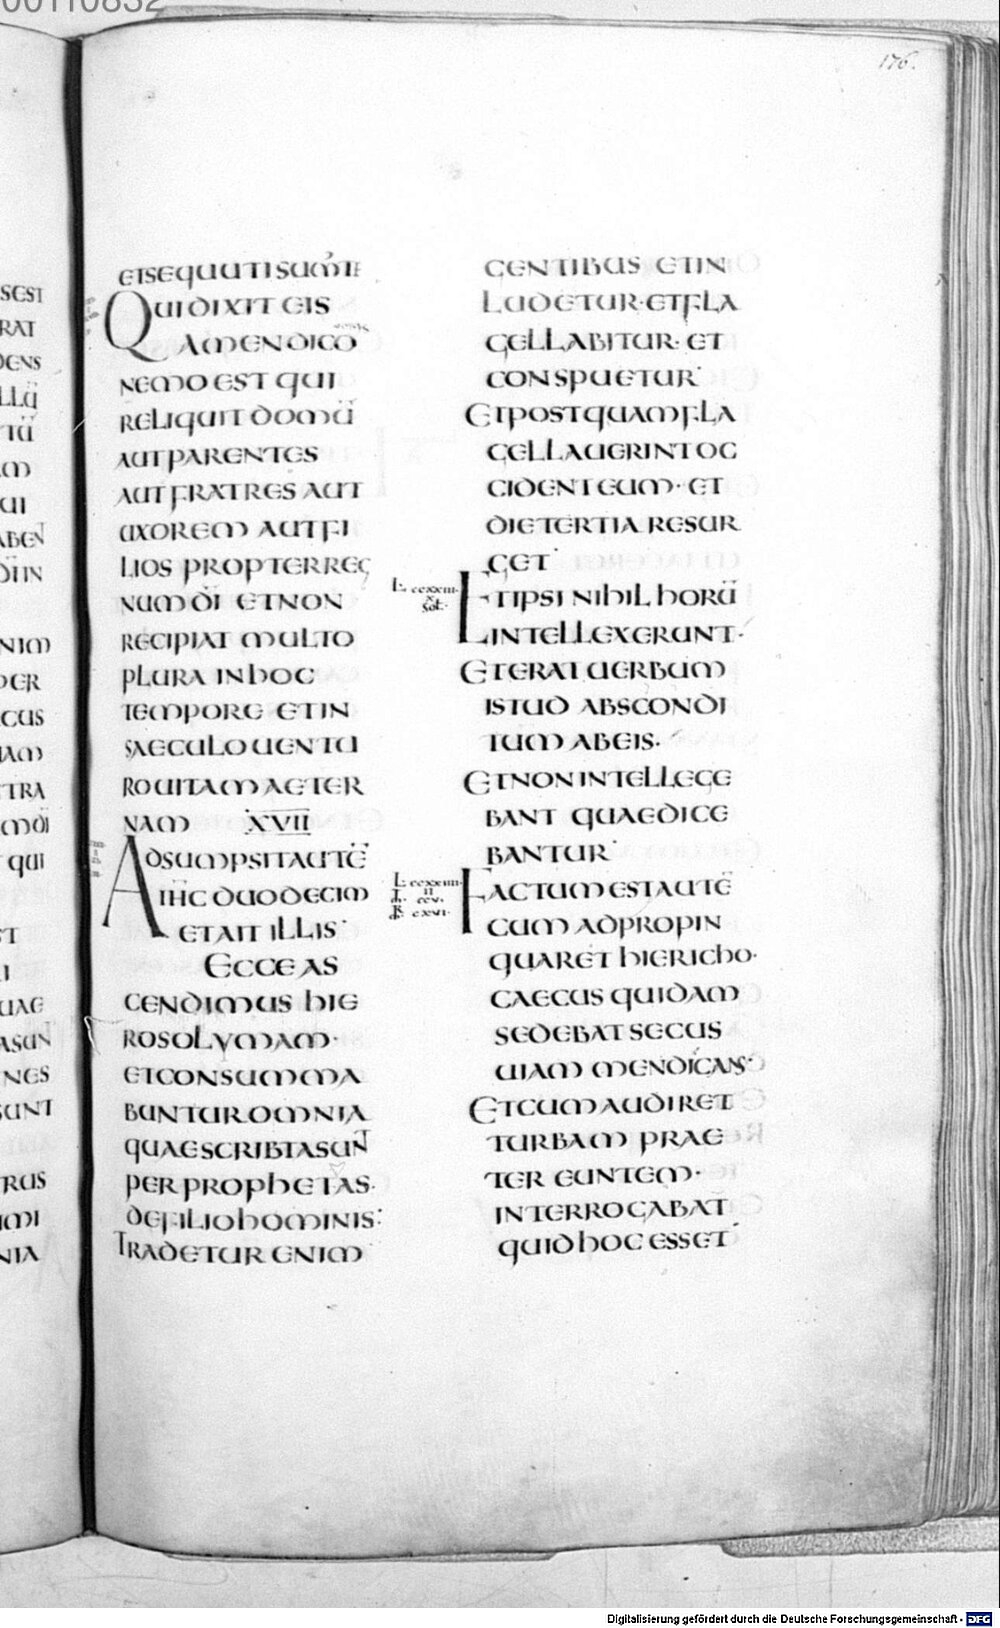 00110832
176.
ETSEQUUTISUM̅TE
QUIDIXIT EIS
AMENDICO
NEMO EST QUI
RELIQUIT DOMŪ
AUT PARENTES
AUT FRATRES AUT
UXOREM AUT FI
LIOS PROPTER REG
NUM DĪ ET NON
RECIPIAT MULTO
PLURA IN HOC
TEMPORE ET IN
SAECULO UENTU
RO UITAM AETER
NAM XVII
ADSUMPSIT AUTĒ
IHC DUODECIM
ET AIT ILLIS·
ECCE AS
CENDIMUS HIE
ROSOLYMAM·
ET CONSUMMA
BUNTUR OMNIA
QUAE SCRIBTA SUNT
PER PROPHETAS·
DE FILIO HOMINIS:
TRADETUR ENIM
GENTIBUS ET IN
LUDETUR·ET FLA
GELLABITUR·ET
CONSPUETUR·
ET POSTQUAM FLA
GELLAUERINT OC
CIDENT EUM·ET
DIE TERTIA RESUR
GET·
L ccxxiii·
x
sol·
ET IPSI NIHIL HORŪ
INTELLEXERUNT·
ET ERAT UERBUM
ISTUD ABSCONDI
TUM AB EIS·
ET NON INTELLEGE
BANT QUAE DICE
BANTUR·
L ccxxiiii·
II
ccv·
cxvi·
FACTUM EST AUTĒ
CUM ADPROPIN
QUARET HIERICHO·
CAECUS QUIDAM
SEDEBAT SECUS
UIAM MENDICANS·
ET CUM AUDIRET
TURBAM PRAE
TEREUNTEM·
INTERROGABAT
QUID HOC ESSET·
Digitalisierung gefördert durch die Deutsche Forschungsgemeinschaft - DFG